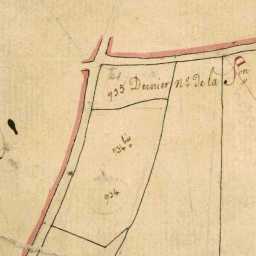 935 Dernier n.o de la S.on
934 bis
934